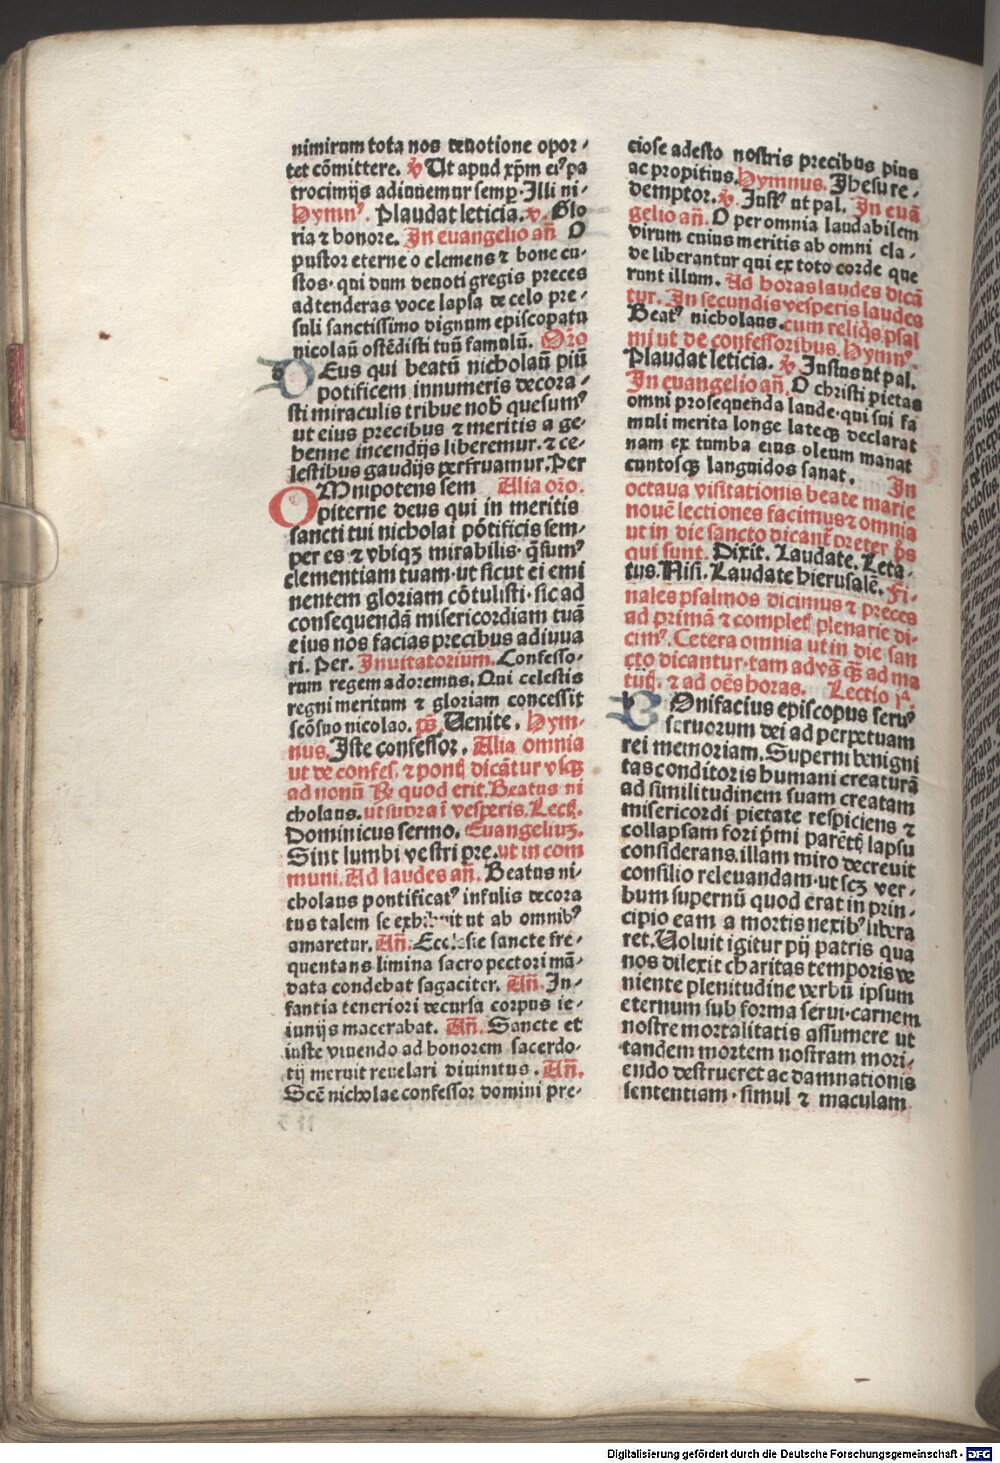 nimirum tota nos deuotione opor-
tet cōmittere. ꝟ Ut apud xp̄m eiꝰ pa
trocinijs adiuuemur semꝑ. Illi ni-
Hymnꝰ. Plaudat leticia. ꝟ. Glo
ria ⁊ honore. In euangelio añ O
pastor eterne o clemens ⁊ bone cu-
stos. qui dum deuoti gregis preces
ad tenderas voce lapsa de celo pre-
suli sanctissimo dignum episcopatu
nicolaū ostēdisti tuū famulū. Oro
DEus qui beatū nicholaū piū
potificem innumeris decora-
sti miraculis tribue nob̄ quesumꝰ
ut eius precibus ⁊ meritis a ge-
henne incendijs liberemur. ⁊ ce-
lestibus gaudijs perfruamur. Per
OMnipotens sem Alia oro.
piterne deus qui in meritis
sancti tui nicholai pōtificis sem-
per es ⁊ vbiqꝫ mirabilis. q̄sumꝰ
clementiam tuam. ut sicut ei emi
nentem gloriam cōtulisti. sic ad
consequendā misericordiam tuā
eius nos facias precibus adiuua
ri. Per. Inuitatorium. Confesso-
rum regem adoremus. Qui celestis
regni meritum ⁊ gloriam concessit
scō suo nicolao. ps̄. Uenite. Hym-
nus. Iste confessor. Alia omnia
ut de confes. ⁊ pont̄ dicātur vsqꝫ
ad nonū ℟ quod erit. Beatus ni
cholaus. ut supra ī vesperis. Lect̄.
Dominicus sermo. Euangeliuꝫ.
Sint lumbi vestri pre. ut in com
muni. Ad laudes añ. Beatus ni-
cholaus pontificatꝰ infulis decora
tus talem se exhibuit ut ab omnibꝰ
amaretur. Añ. Ecclesie sancte fre-
quentans limina sacro pectori mā-
data condebat sagaciter. Añ. In-
fantia teneriori decursa corpus ie-
iunijs macerabat. Añ. Sancte et
iuste viuendo ad honorem sacerdo-
tij meruit reuelari diuinitus. Añ.
Scē nicholae confessor domini pre-
ciose adesto nostris precibus pius
ac propitius. Hymnus. Ihesu re-
demptor. ꝟ. Justꝰ ut pal. In euā
gelio añ. O per omnia laudabilem
virum cuius meritis ab omni cla-
de liberantur qui ex toto corde que
runt illum. Ad horas laudes dicā
tur. In secundis vesperis laudes
Beatꝰ nicholaus. cum reliqꝭ psal
mi ut de confessoribus. Hymnꝰ.
Plaudat leticia. ꝟ Justus ut pal.
In euangelio añ. O christi pietas
omni prosequenda laude. qui sui fa
muli merita longe lateqꝫ declarat
nam ex tumba eius oleum manat
cuntosqꝫ languidos sanat. In
octaua visitationis beate marie
nouē lectiones facimus ⁊ omnia
ut in die sancto dicant̄ preter p̄s
qui sunt. Dixit. Laudate. Leta-
tus. Nisi. Laudate hierusalē. Fi-
nales psalmos dicimus ⁊ preces
ad primā ⁊ complet̄ plenarie di-
cimꝰ. Cetera omnia ut in die san
cto dicantur. tam ad vs̄ qꝫ ad ma
tut̄. ⁊ ad oēs horas. Lectio jᵃ.
BOnifacius episcopus seruꝰ
seruorum dei ad perpetuam
rei memoriam. Superni benigni
tas conditoris humani creaturā
ad similitudinem suam creatam
misericordi pietate respiciens ⁊
collapsam fori p̄mi parētꝫ lapsu
considerans. illam miro decreuit
consilio releuandam. ut scꝫ ver-
bum supernū quod erat in prin-
cipio eam a mortis nexibꝰ libera
ret. Uoluit igitur pij patris qua
nos dilexit charitas temporis ve
niente plenitudine verbū ipsum
eternum sub forma serui. carnem
nostre mortalitatis assumere ut
tandem mortem nostram mori-
endo destrueret ac damnationis
sententiam. simul ⁊ maculam
Digitalisierung gefördert durch die Deutsche Forschungsgemeinschaft - DFG